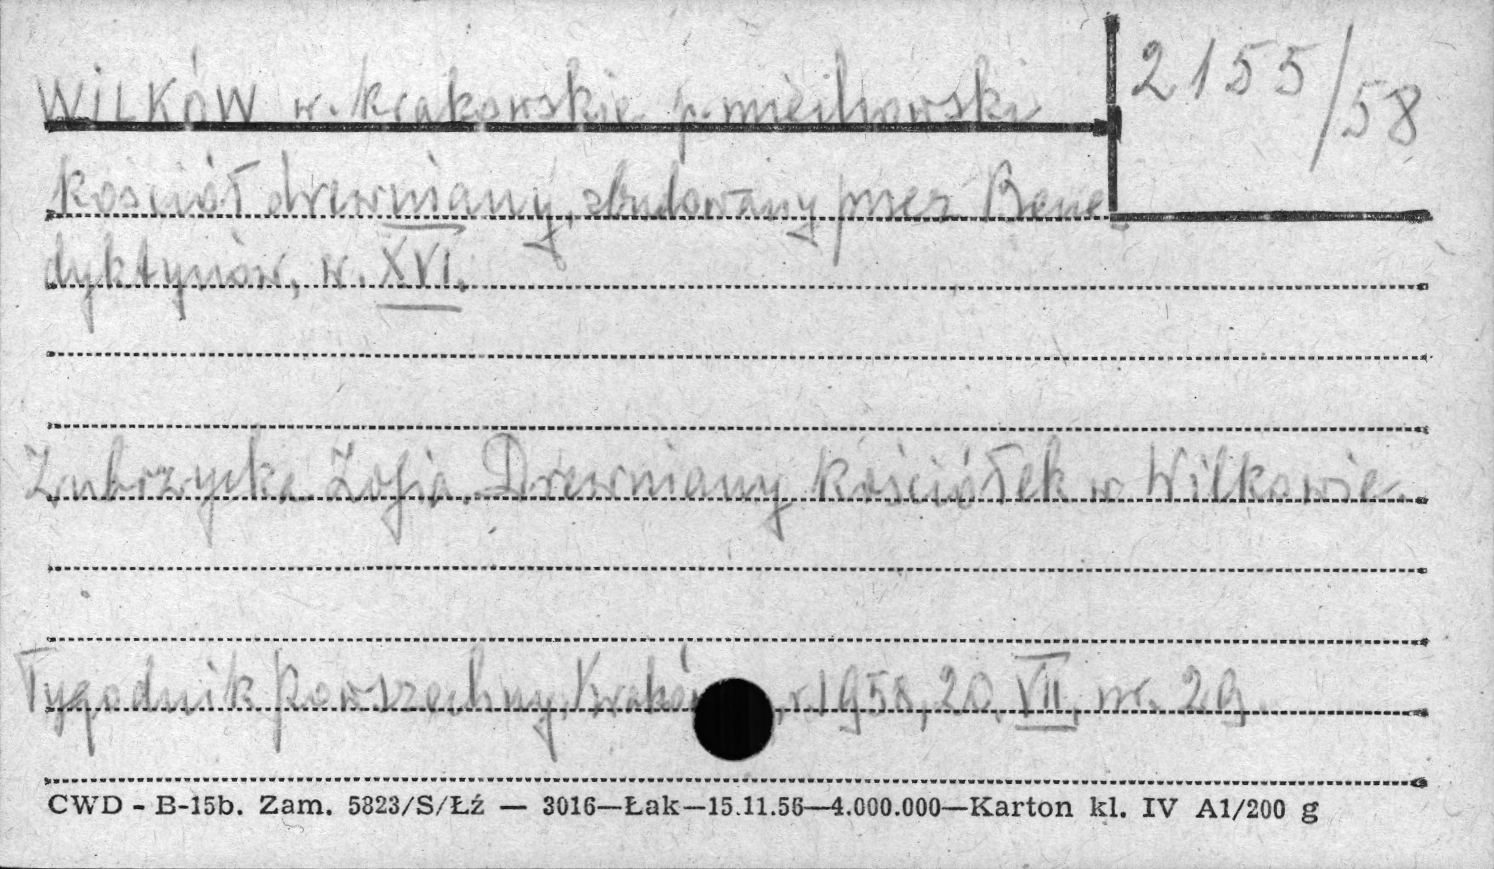 WILKÓW w. krakowskie p. miechowski
2155/58
kościół drewniany, zbudowany przez Bene
dyktynów, w. XVI.
Zubrzycka Zofia. Drewniany kościółek w Wilkowie.
Tygodnik Powszechny, Kraków, r. 1958, 20. VII, nr. 29.
CWD - B-15b. Zam. 5823/S/Łź — 3016—Łak—15.11.56—4.000.000—Karton kl. IV A1/200 g